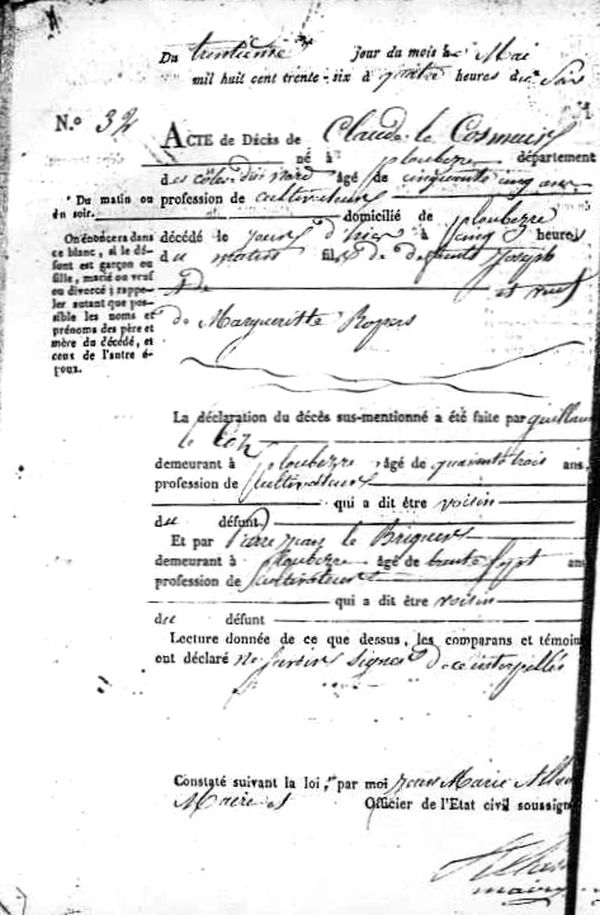 Du trentième Jour du mois de Mai
mil huit cent trente-six à quatre heures du Soir
N.º 32
ACTE de Décès de Claude le Cosmeur
né à ploubezre département
des côtes du nord âgé de cinquante cinq ans
profession de cultivateur
domicilié de ploubezre
décédé le jour d'hier à cinq heures
du matin fils de defunt Joseph
& de et veuf
de Margueritte Ropers
* Du matin ou
du soir.
On énoncera dans
ce blanc, si le dé-
funt est garçon ou
fille, marié ou veuf
ou divorcé ; rappe-
ler autant que pos-
sible les noms et
prénoms des père et
mère du décédé, et
ceux de l'autre é-
poux.
La déclaration du décès sus-mentionné a été faite par guillaum
le
demeurant à ploubezre âgé de quarante trois ans,
profession de Cultivateur
qui a dit être voisin
du défunt
Et par Pierre jean le Briquer
demeurant à Ploubezre âgé de trente sept ans
profession de Cultivateur
qui a dit être voisin
du défunt
Lecture donnée de ce que dessus, les comparans et témoin
ont déclaré ne savoir signer de ce interpellés
Constaté suivant la loi, par moi jean Marie
Maire Officier de l'Etat civil soussign
maire